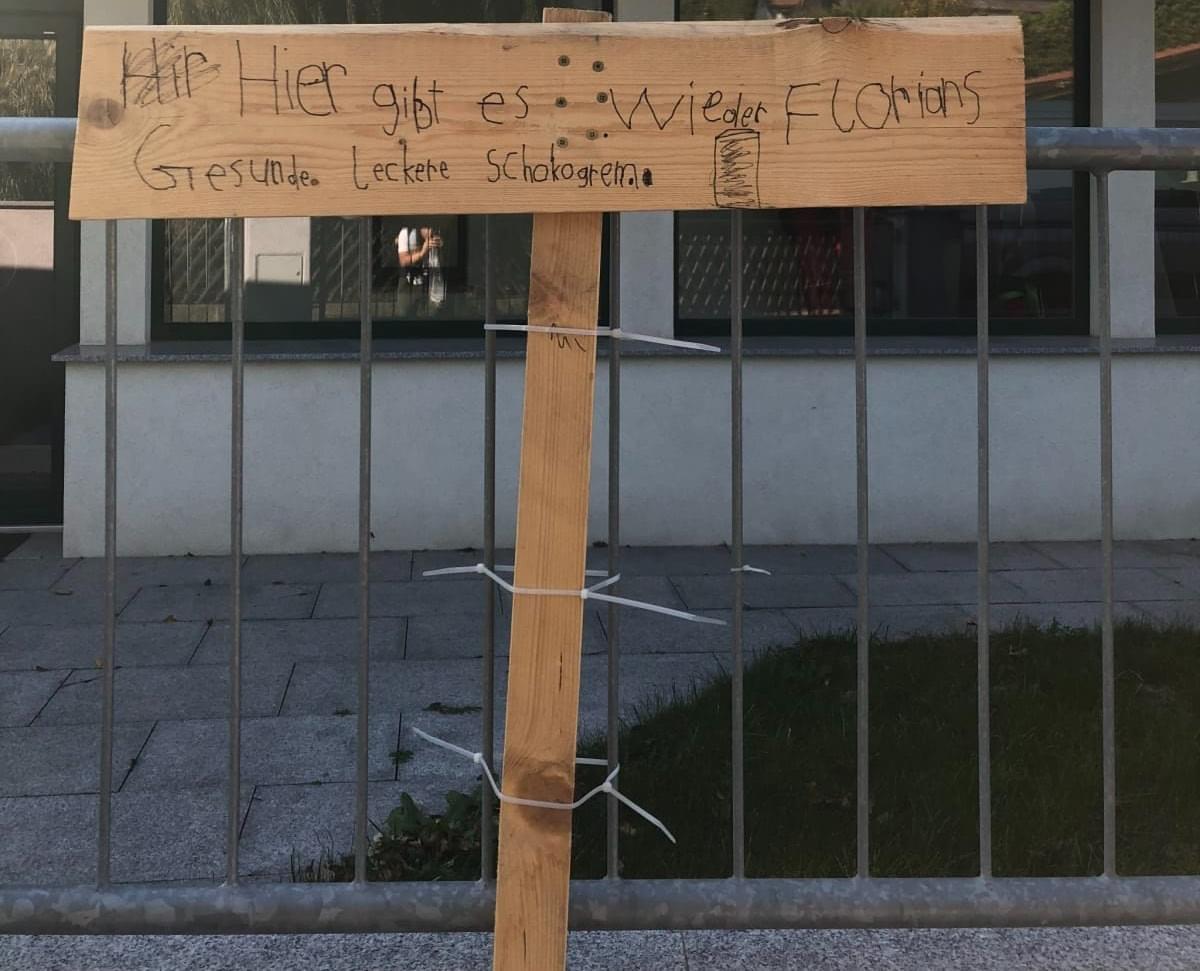 Hir Hier gibt es wieder Florians
Gesunde. Leckere Schokogrem.